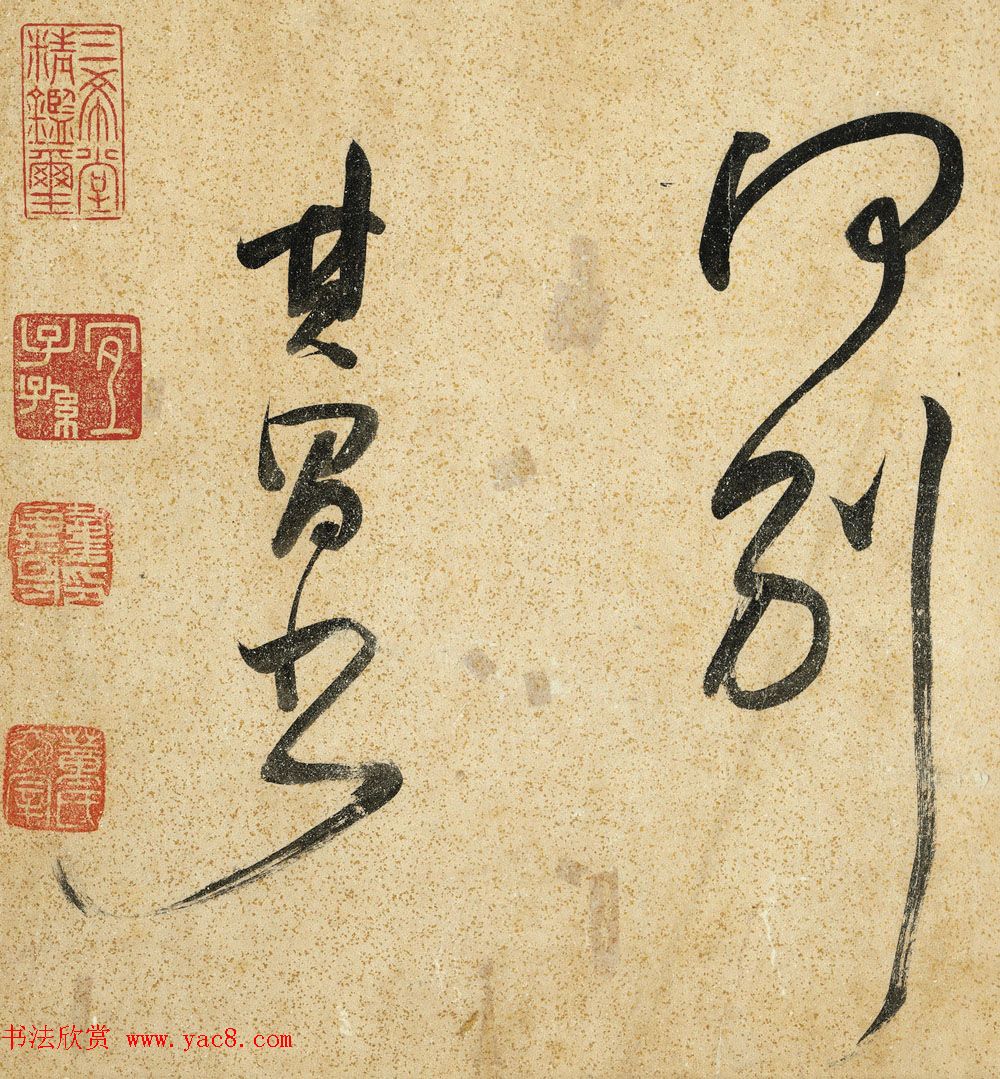 何別
其昌書
三希堂精鑑璽
宜子孫
書法欣赏 www.yac8.com